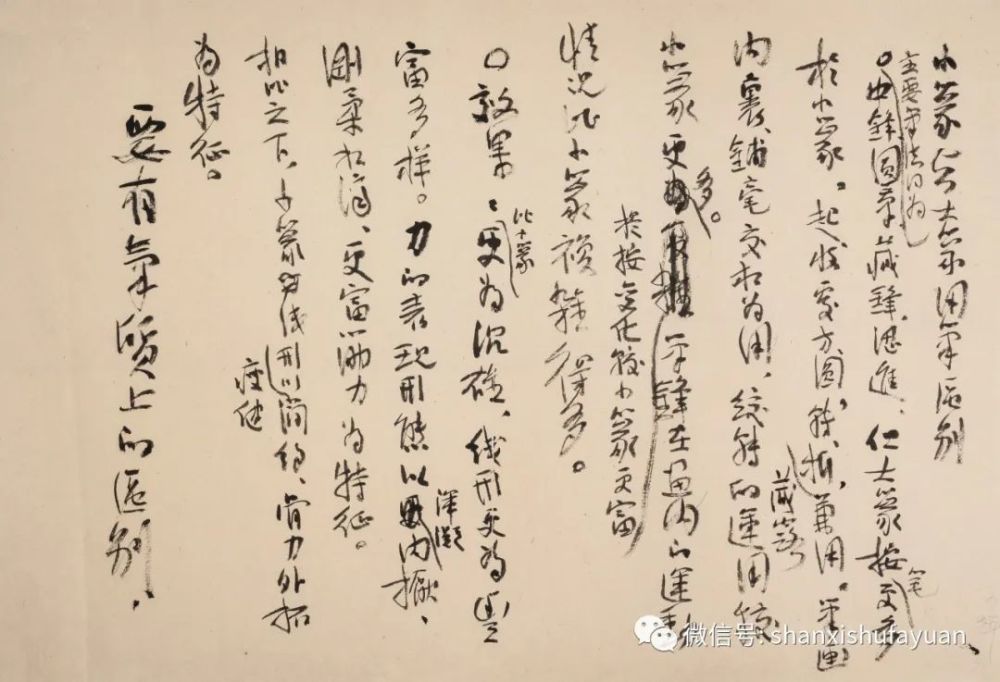 小篆与大篆用笔区别
主要笔法同为
。中锋圆笔藏锋逆进、仁大篆按笔更多
於小篆。起收处方圆、转折、兼用。笔画
藏露
内裏、铺毫交相为用、绞转的运用较
小篆更多。平锋在画内的运动
於按变化较小篆更富
情况比小篆複雜得多。
○效果：比小篆更为沉雄、线形更为豊
富多样。力的表现形態以浑凝内擫、
刚柔相济、更富韧力为特征。
相比之下、小篆的线形以简约、骨力外拓
瘦健
为特征。
要有气质上的区别.
微信号: shanxishufayuan